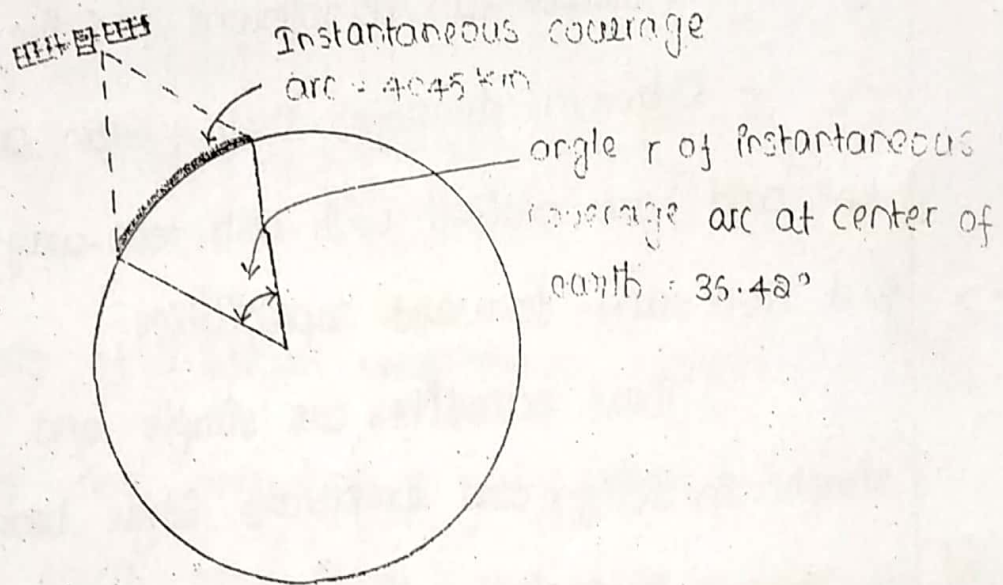 Instantaneous coverage
arc = 4045 km
angle r of instantaneous
coverage arc at center of
earth = 36.42°